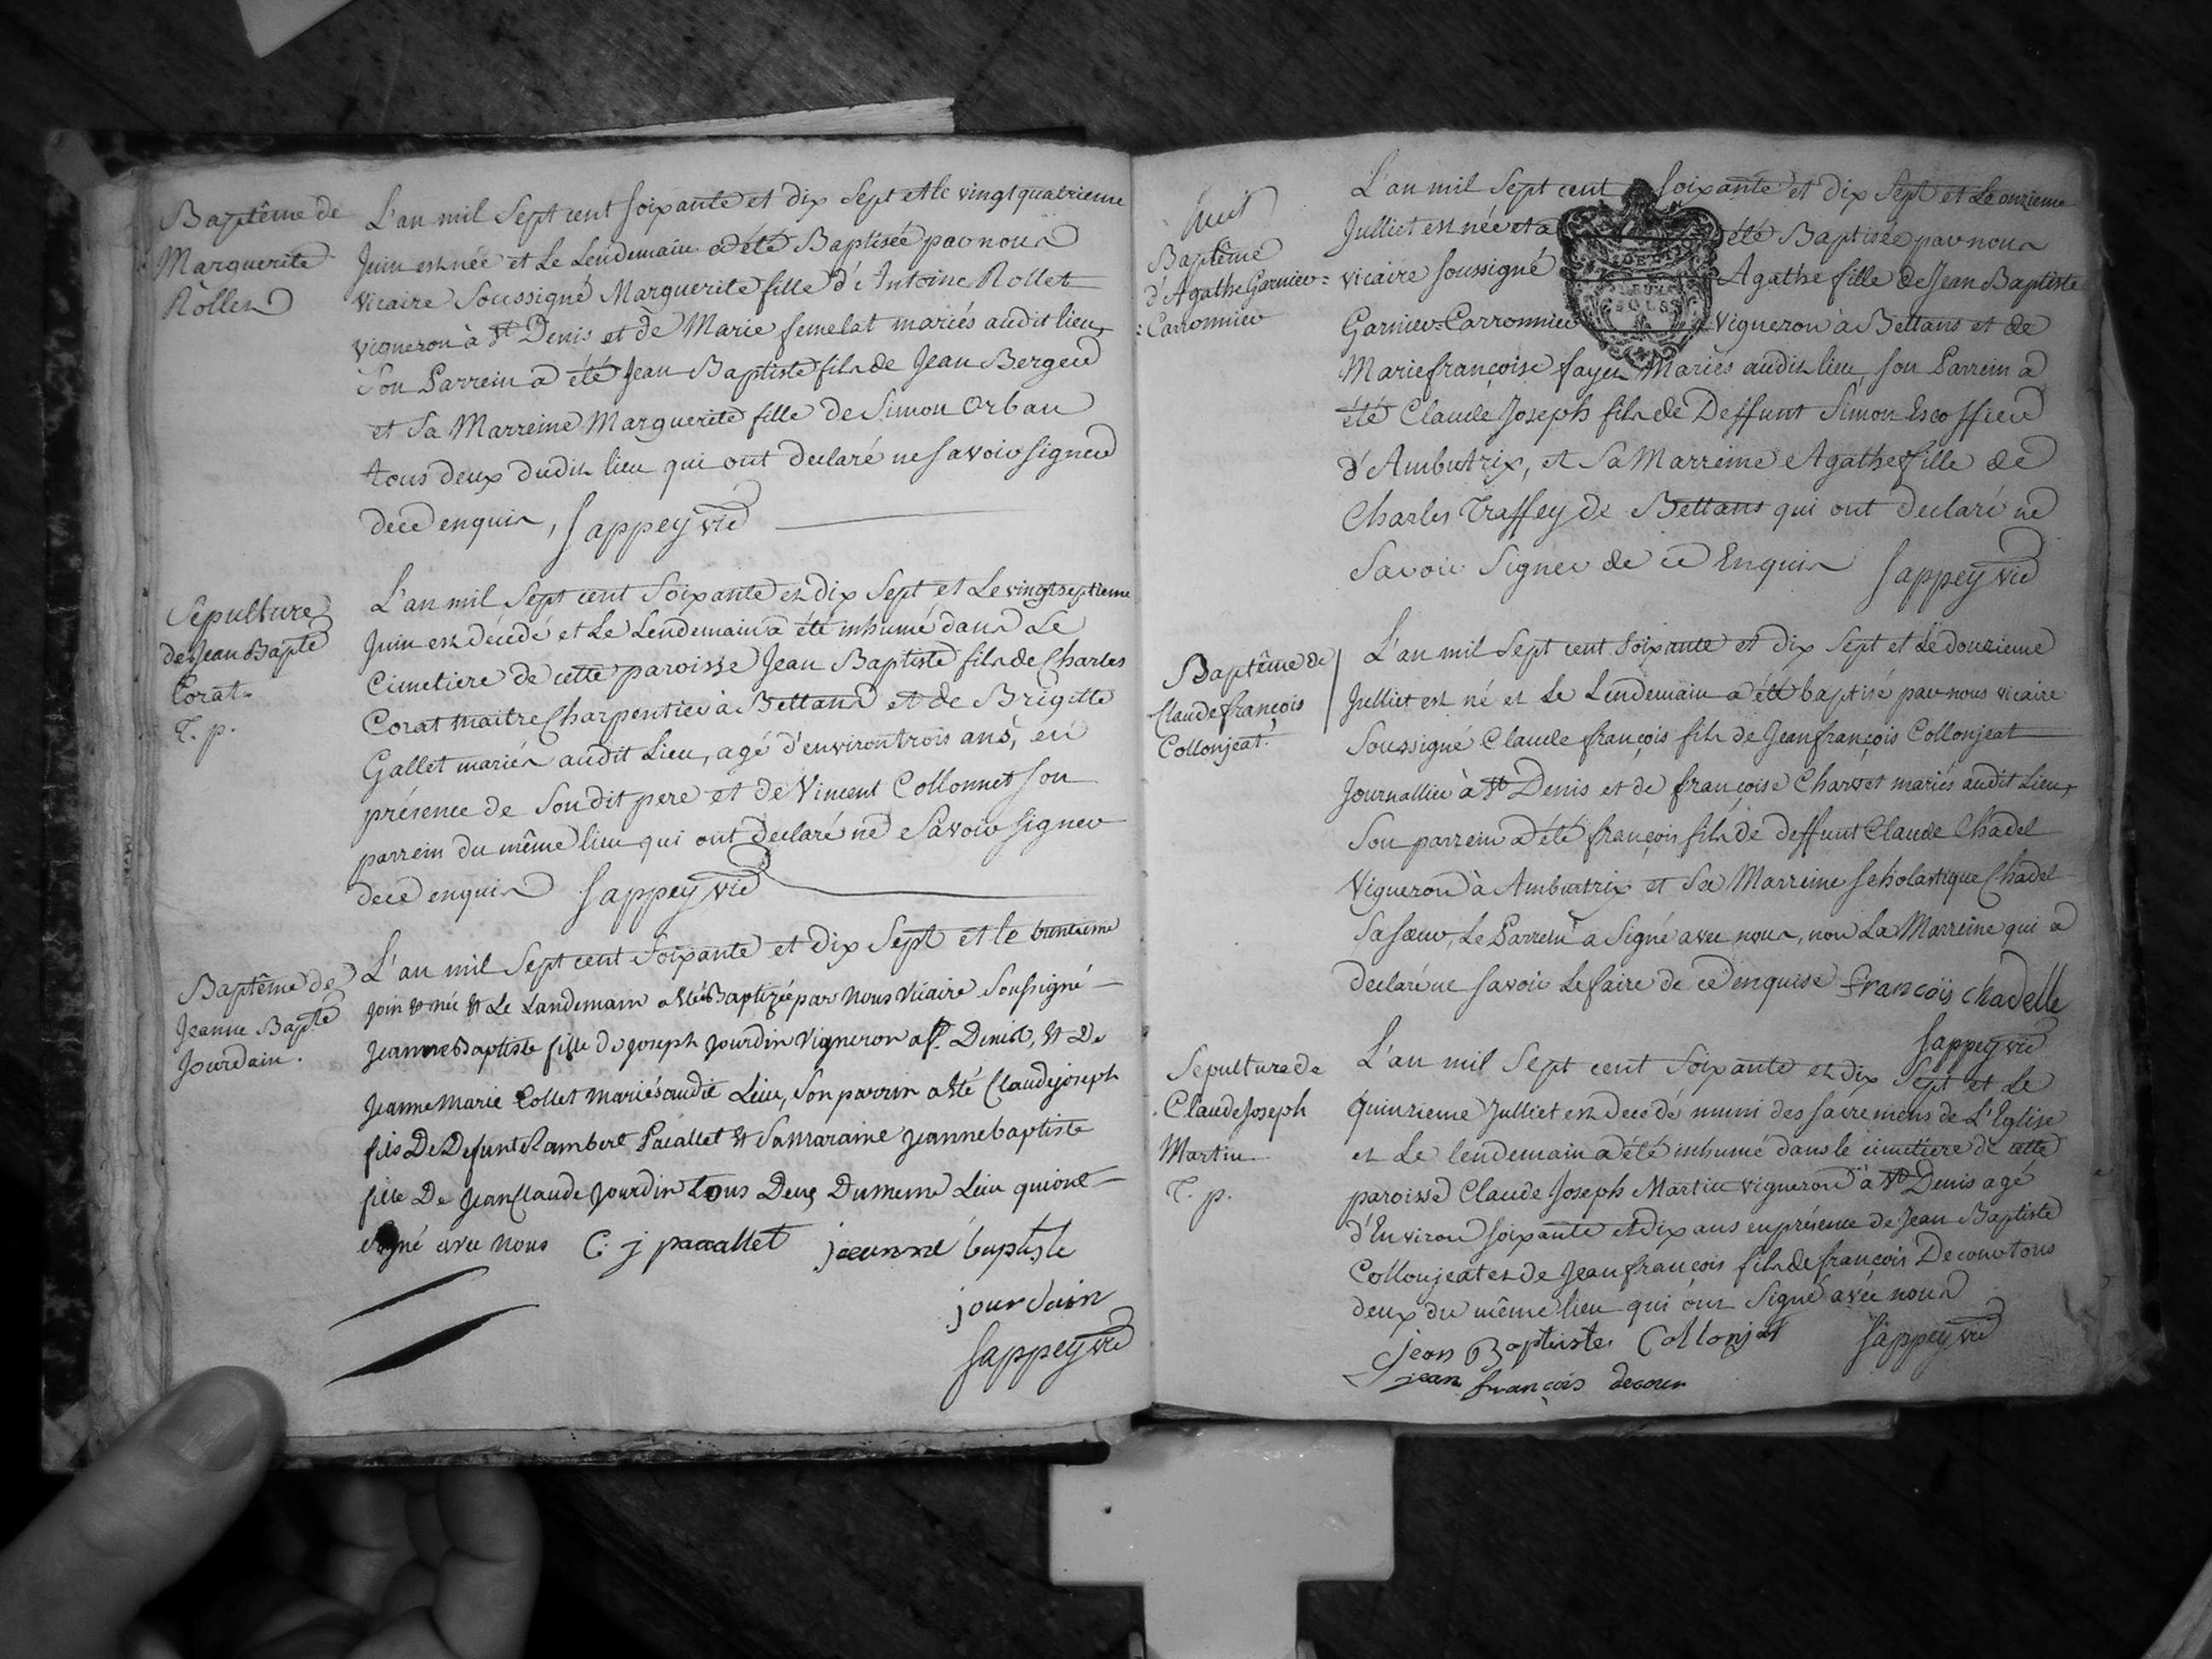 Baptême de
Marguerite
Rollet
L'an mil Sept cent soixante et dix Sept et le vingt quatrieme
Juin est née et Le Lendemain a été Baptisée par nous
vicaire Soussigné Marguerite fille d'Antoine Rollet
vigneron à St Denis et de Marie femelat mariés audit lieu,
Son Parrein a été Jean Baptiste fils de Jean Berger
et Sa Marreine Marguerite fille de Simon Orban
tous deux dudit lieu qui ont declaré ne savoir signer
de ce enquis, Sappey vic
Sepulture
de Jean Bapte
Corat.
T. p.
L'an mil Sept cent Soixante et dix Sept et Le vingt septieme
Juin est décédé et Le Lendemain a été inhumé dans Le
Cimetiere de cette paroisse Jean Baptiste fils de Charles
Corat maitre Charpentier à Bettans et de Brigitte
Gallet mariés audit Lieu, agé d'environ trois ans, en
présence de Son dit pere et de Vincent Collonnet son
parrein du même lieu qui ont declaré ne Savoir signer
de ce enquis Sappey vic
Baptême de
Jeanne Bapte
Jourdain.
L'an mil Sept cent Soixante et dix Sept et le trentieme
join et née et Le Landemain a été Baptizée par Nous Vicaire Soussigné
Jeanne Baptiste fille de joseph jourdin vigneron a St. Denist, et De
jeanne Marie Collet mariés audit Lieu, Son parrin a été Claude joseph
fils De Defunt Lambert Pacallet et Sa maraine jeanne baptiste
fille De jean Claude jourdin tous Deux Du meme Lieu qui ont
signé avec nous C j pacallet jeanne baptiste
jourdain
Sappey vic
huit
Baptême
d'Agathe Garnier=
=Carronnier
L'an mil Sept cent soixante et dix Sept et Le onzieme
Julliet est née et a été Baptisée par nous
vicaire soussigné Agathe fille de Jean Baptiste
Garnier=Carronnier Vigneron à Bettans et de
Marie françoise fayet Mariés audit lieu, son Parrein a
été Claude Joseph fils de Deffunt Simon Escoffier
d'Ambutrix, et Sa Marreine Agathe fille de
Charles Traffey de Bettans qui ont declaré ne
Savoir Signer de ce Enquis Sappey vic
Baptême de
Claude françois
Collonjeat.
L'an mil Sept cent Soixante et dix Sept et Le douzieme
Julliet est né et Le Lendemain a été baptisé par nous vicaire
Soussigné Claude françois fils de Jean françois Collonjeat
Journallier à St Denis et de françoise Charvet mariés audit Lieu,
Son parrein a été françois fils de deffunt Claude Chadel
Vigneron à Ambutrix et Sa Marreine Scholastique Chadel
Sa sœur, Le Parrein a Signé avec nous, non La Marreine qui a
declaré ne savoir Le faire de ce enquise françois chadelle
Sappey vic
Sepulture de
Claude Joseph
Martin
T. p.
L'an mil Sept cent Soixante et dix Sept et Le
quinzieme Julliet est decedé muni des sacremens de L'Eglise
et Le lendemain a été inhumé dans le cimetiere de cette
paroisse Claude Joseph Martin vigneron à St Denis agé
d'Environ soixante et dix ans en présence de Jean Baptiste
Collonjeat et de Jean françois fils de françois Decour tous
deux du même lieu qui ont Signé avec nous
jean Baptiste Collonjat Sappey vic
jean françois decour